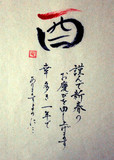 酉
謹んで新春の
お慶びを申し上げます
幸多き一年で
ありますように